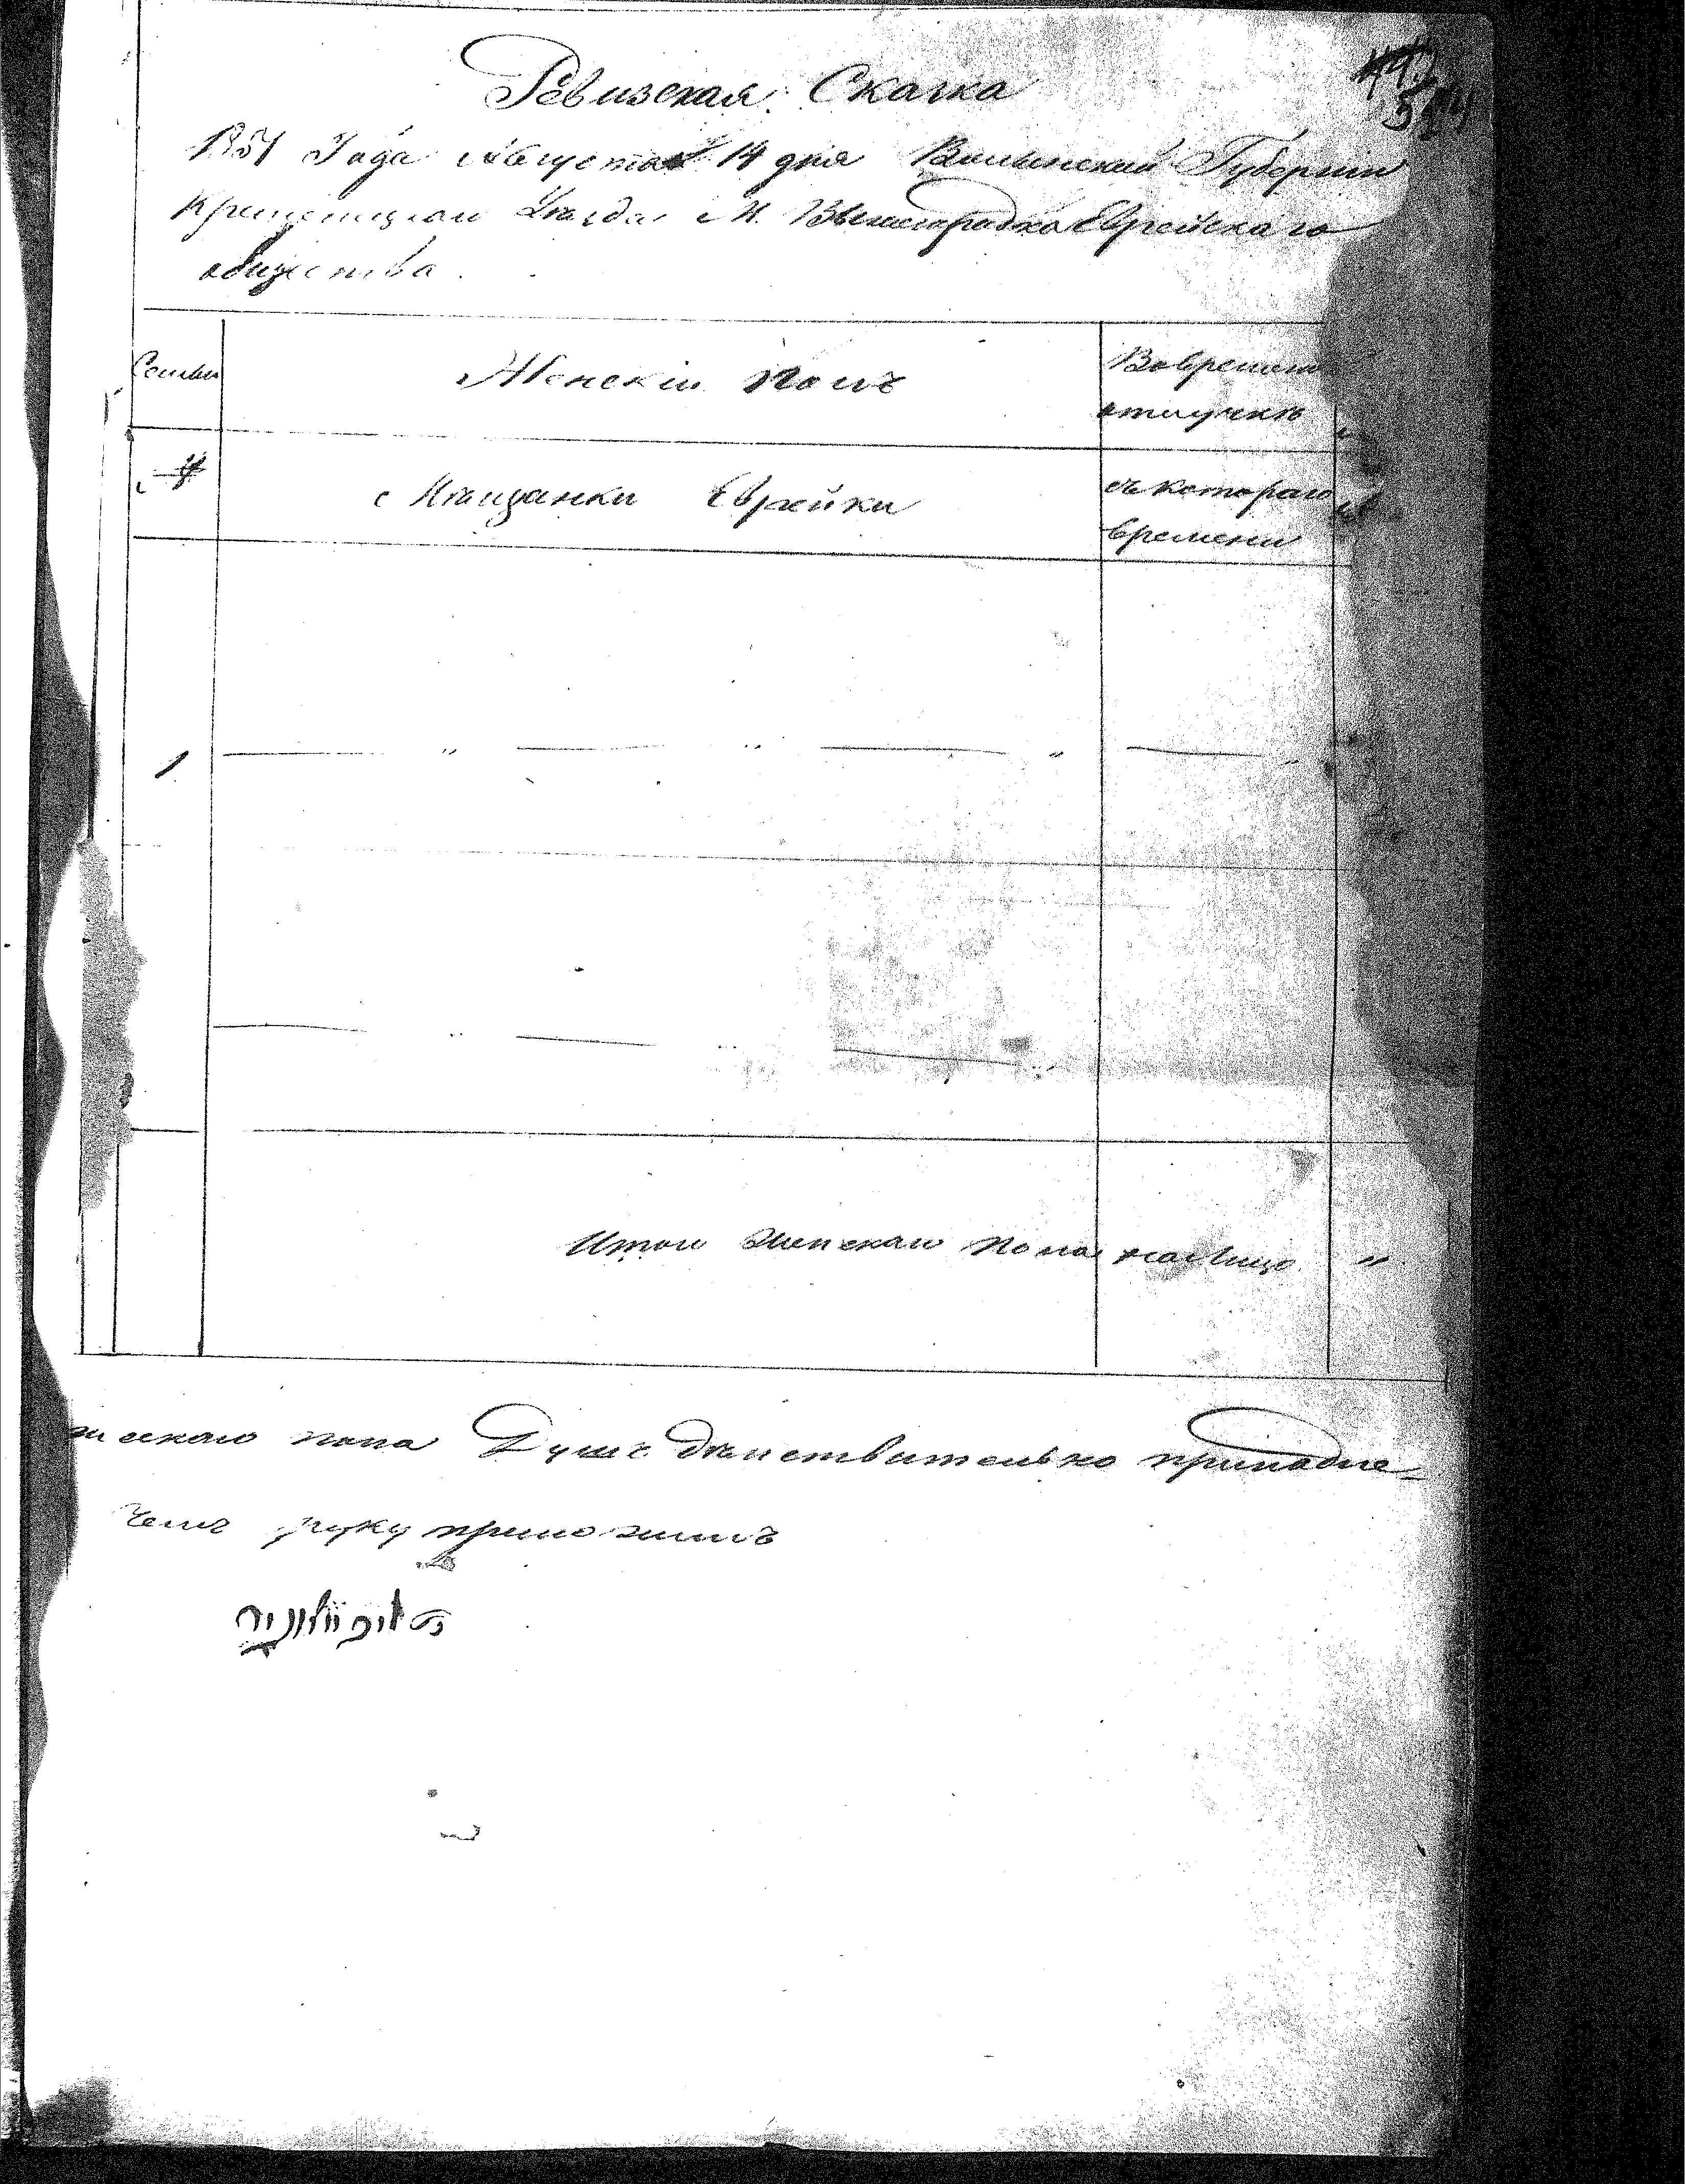 Ревизская Сказка
1851 Года Августа 14 дня Волынской Губернии
Кременецкого Уезда М. Вышегородка Еврейскаго
общества.
Семьи
Женскій полъ
Во времян
отлучкѣ
Мещанки Еврейки
съ котораго
времени
1
Итого Женскаго пола на лицо "
скаго пола Душъ действительно припадле=
чемъ руку приложилъ